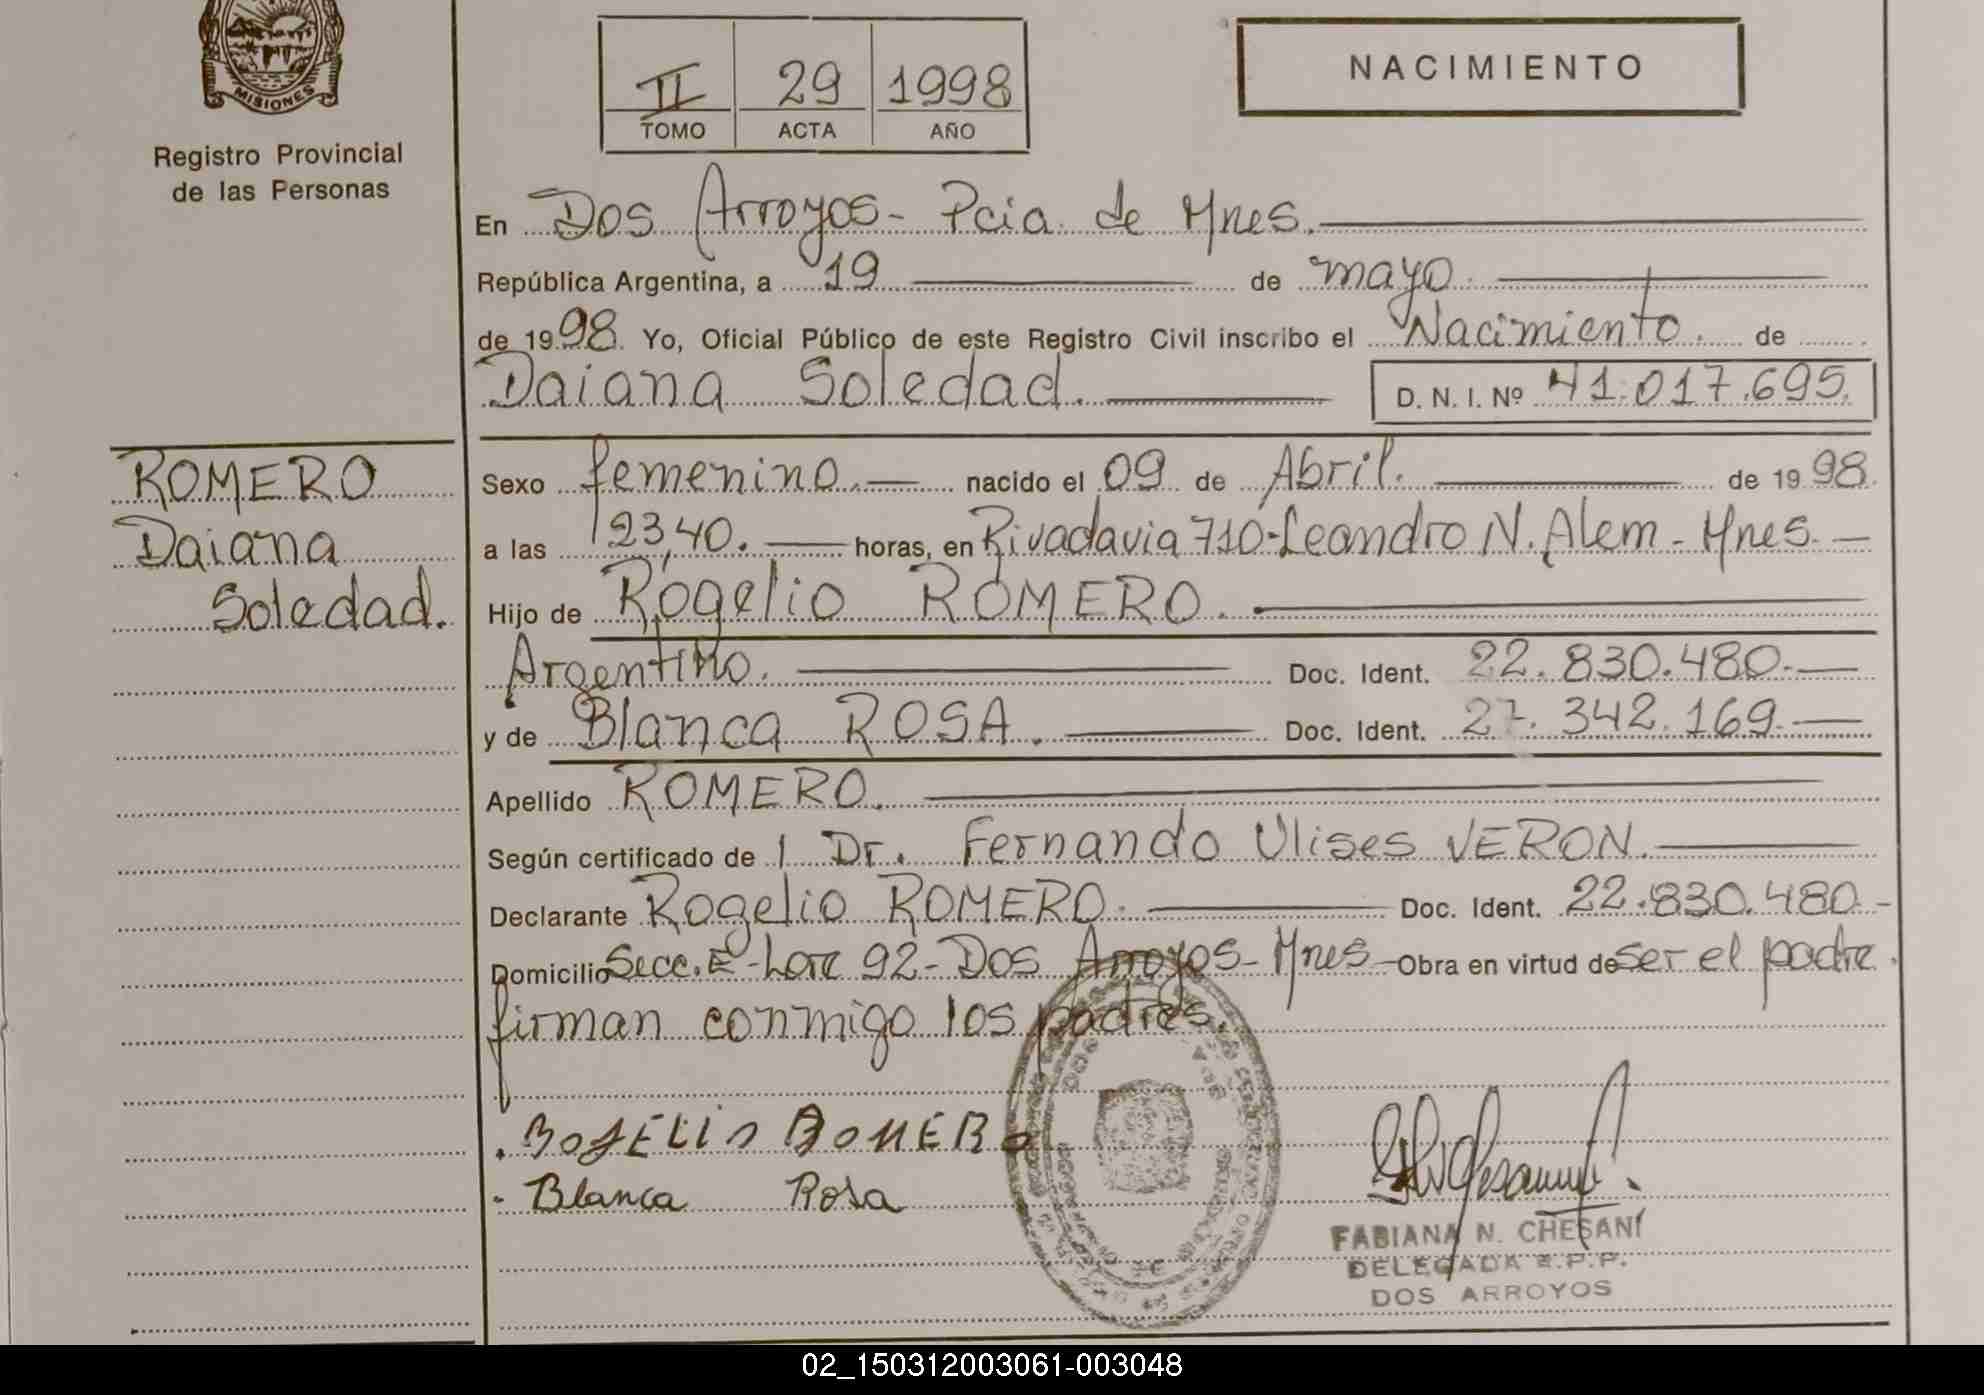 MISIONES
Registro Provincial
de las Personas
II 29 1998
TOMO ACTA AÑO
NACIMIENTO
En Dos Arroyos - Pcia de Mnes.
República Argentina, a 19 de mayo
de 1998. Yo, Oficial Público de este Registro Civil inscribo el Nacimiento. de
Daiana Soledad. D. N. I. Nº 41.017.695.
ROMERO
Daiana
Soledad.
Sexo femenino. nacido el 09 de Abril. de 1998.
a las 23,40. horas, en Rivadavia 710-Leandro N. Alem - Mnes.
Hijo de Rogelio ROMERO.
Argentino. Doc. Ident. 22.830.480.
y de Blanca ROSA. Doc. Ident. 27.342.169.
Apellido ROMERO.
Según certificado de Dr. Fernando Ulises VERON.
Declarante Rogelio ROMERO. Doc. Ident. 22.830.480.
Domicilio Secc. E - Lote 92 - Dos Arroyos - Mnes - Obra en virtud de ser el padre.
firman conmigo los padres.
ROGELIO ROMERO
Blanca Rosa
FABIANA N. CHESANI
DELEGADA R.P.P.
DOS ARROYOS
02_150312003061-003048